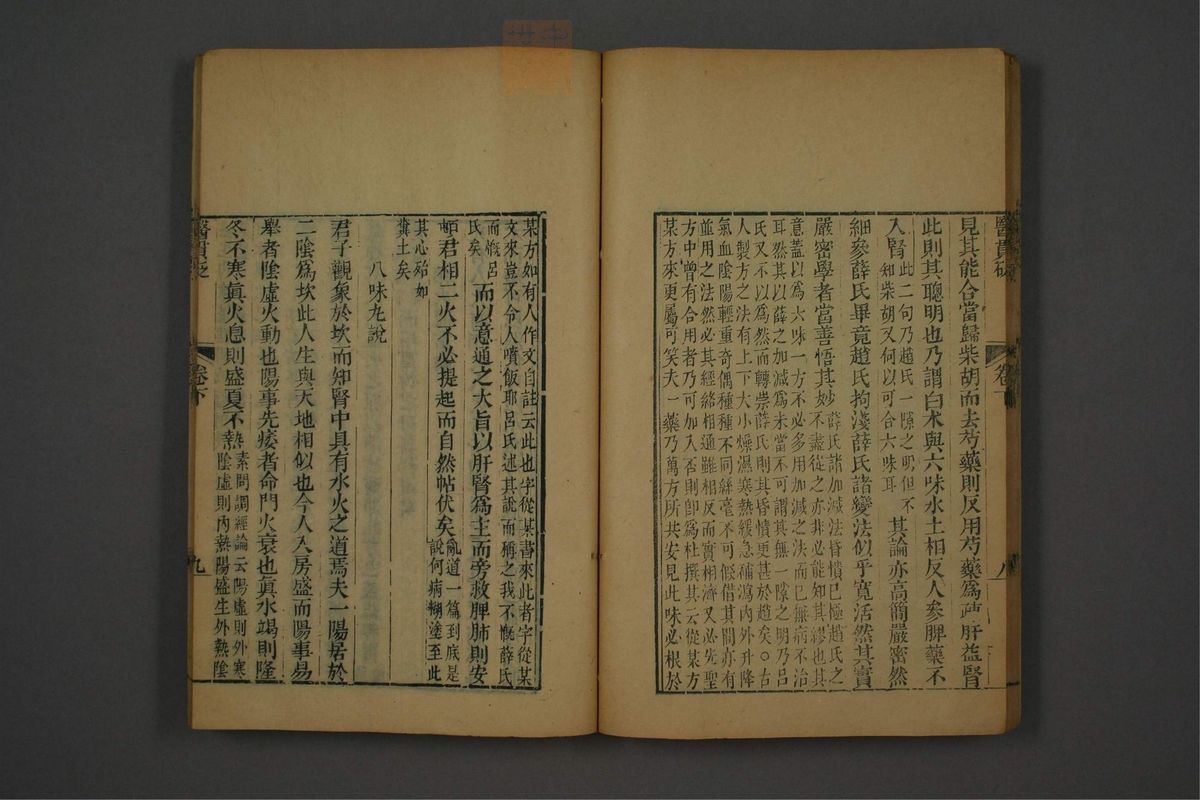 醫貫砭
卷下
八
見其能合當歸柴胡而去芍藥則反用芍藥爲疏肝益腎
此則其聰明也乃謂白朮與六味水土相反人參脾藥不
入腎
此二句乃趙氏一隙之明但不
知柴胡又何以可合六味耳
其論亦高簡嚴密然
細參薛氏畢竟趙氏拘淺薛氏諸變法似乎寬活然其實
嚴密學者當善悟其妙不盡從之亦非必能知其繆也其
薛氏諸加減法昏憒已極趙氏之
意蓋以爲六味一方不必多用加減之法而已無病不治
耳然其以薛之加減爲未當不可謂其無一隙之明乃呂
氏又不以爲然而轉崇薛氏則其昏憒更甚於趙矣○古
人製方之法有上下大小燥濕寒熱緩急補瀉內外升降
氣血陰陽輕重奇偶種種不同絲毫不可假借其間亦有
並用之法然必其經絡相通雖相反而實相濟又必先聖
方中曾有合用者乃可加入否則卽爲杜撰其云從某方
某方來更屬可笑夫一藥乃萬方所共安見此味必根於
某方如有人作文自註云此也字從某書來此者字從某
文來豈不令人噴飯耶呂氏述其說而稱之我不慨薛氏
而慨呂
氏矣
而以意通之大旨以肝腎爲主而旁救脾肺則安
頓君相二火不必提起而自然帖伏矣
亂道一篇到底是
說何病糊塗至此
其心殆如
糞土矣
八味丸說
君子觀象於坎而知腎中具有水火之道焉夫一陽居於
二陰爲坎此人生與天地相似也今人入房盛而陽事易
舉者陰虛火動也陽事先痿者命門火衰也眞水竭則隆
冬不寒眞火息則盛夏不熱
素問調經論云陽虛則外寒
陰虛則內熱陽盛生外熱陰
醫貫砭
卷下
九